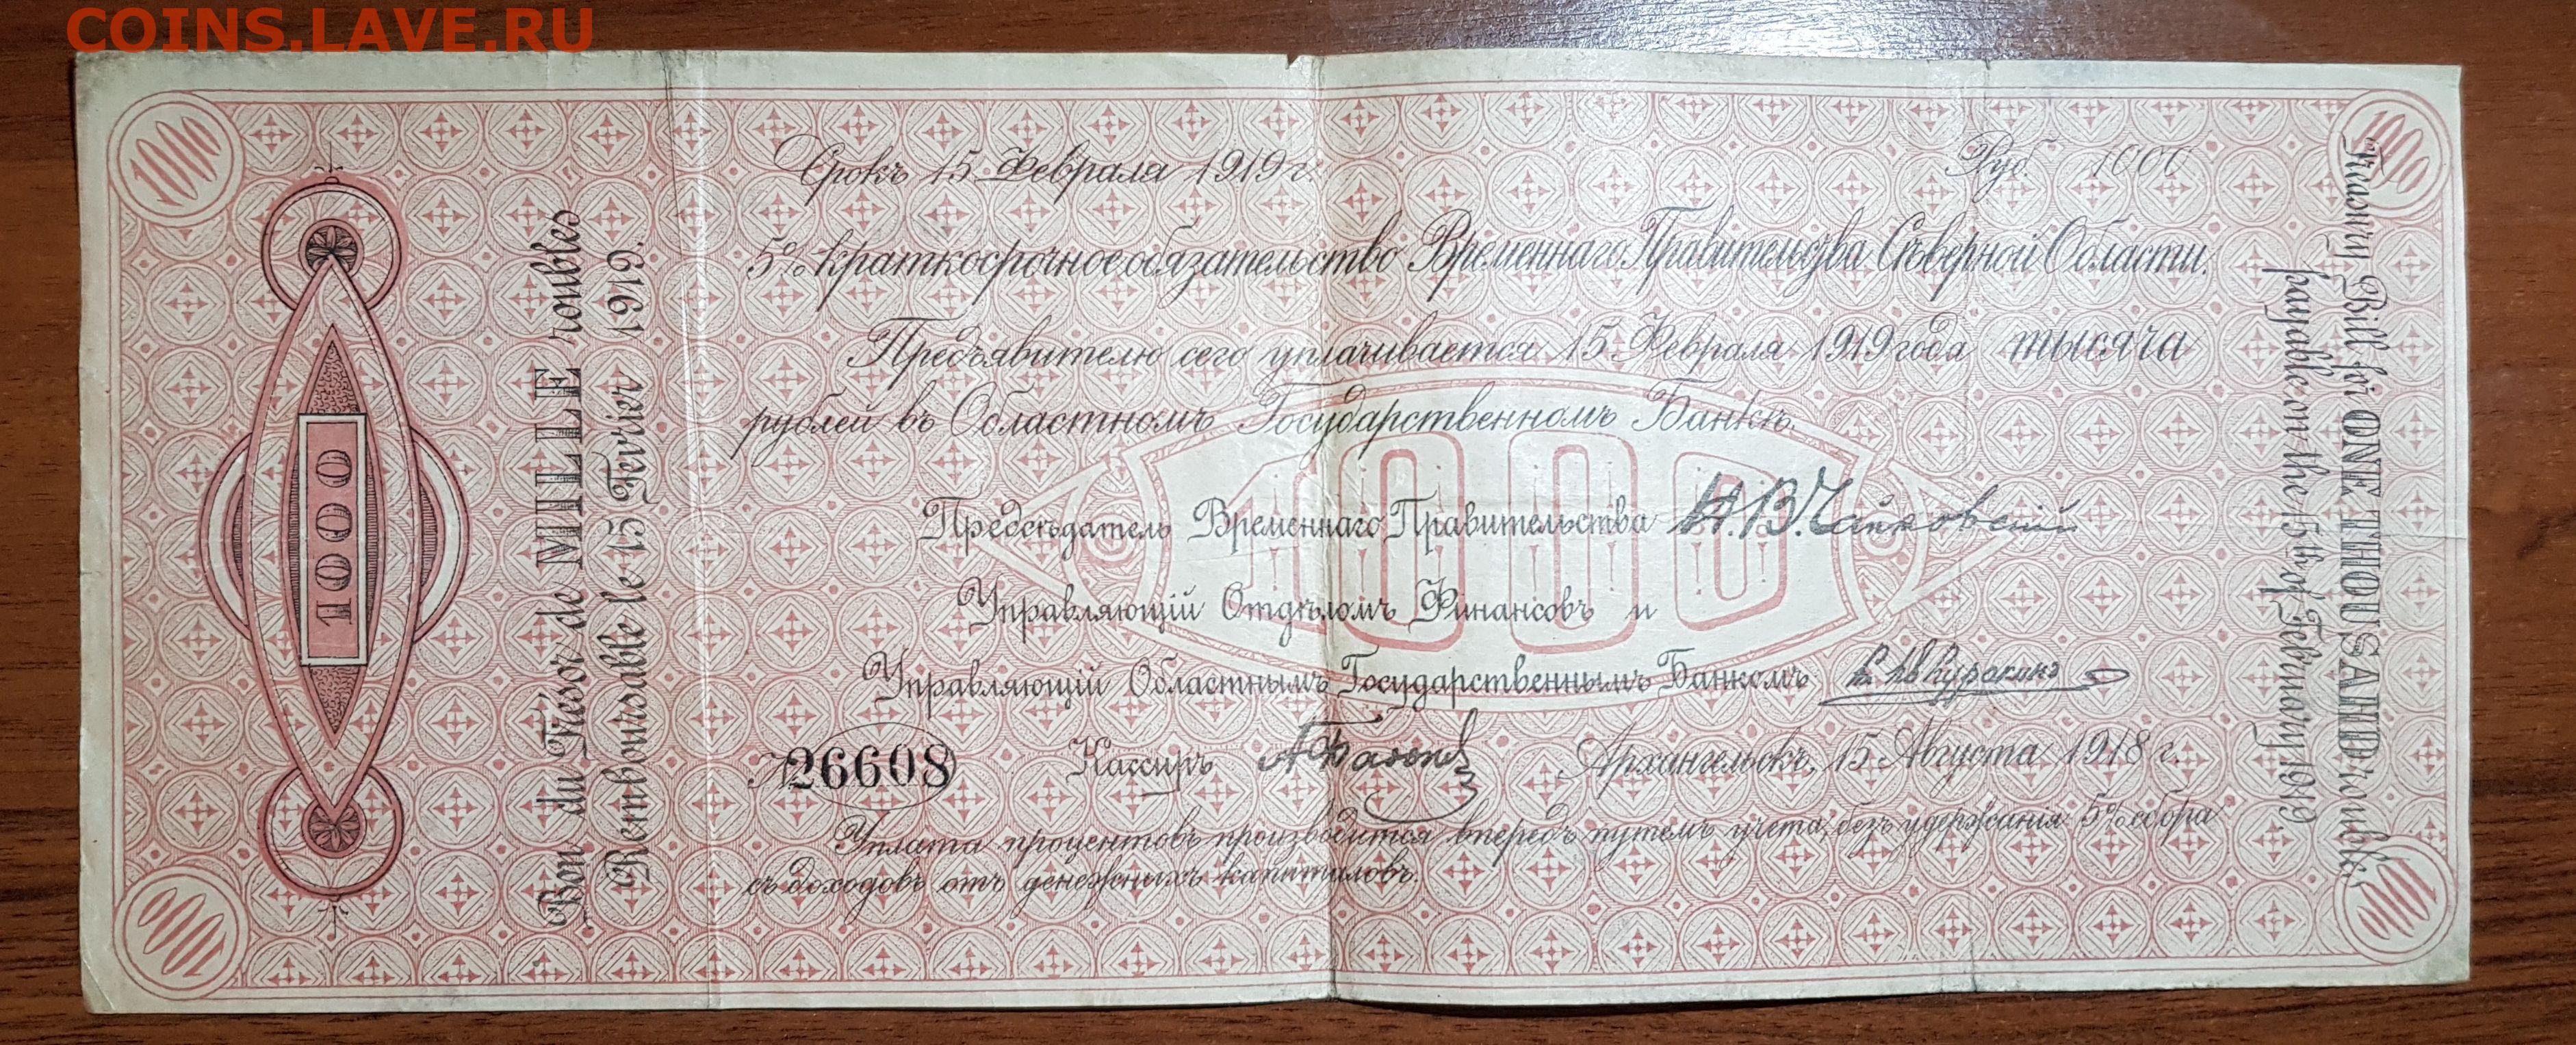 COINS.LAVE.RU
1000
1000
Срокъ 15 Февраля 1919 г.
Руб. 1000
5% краткосрочное обязательство Временнаго Правительства Сѣверной Области.
Предъявителю сего уплачивается 15 Февраля 1919 года тысяча
рублей въ Областномъ Государственномъ Банкѣ.
1000
Предсѣдатель Временнаго Правительства Н.В.Чайковскій
Управляющій Отдѣломъ Финансовъ и
Управляющій Областнымъ Государственнымъ Банкомъ Куракинъ
№ 26608 Кассиръ Архангельскъ, 15 Августа 1918 г.
Уплата процентовъ производится впередъ путемъ учета, безъ удержанія 5% сбора
съ доходовъ отъ денежныхъ капиталовъ.
1000
Bon du Trésor de MILLE roubles
Remboursable le 15 Fevrier 1919.
Treasury Bill for ONE THOUSAND roubles
payable on the 15th of February 1919
1000
1000